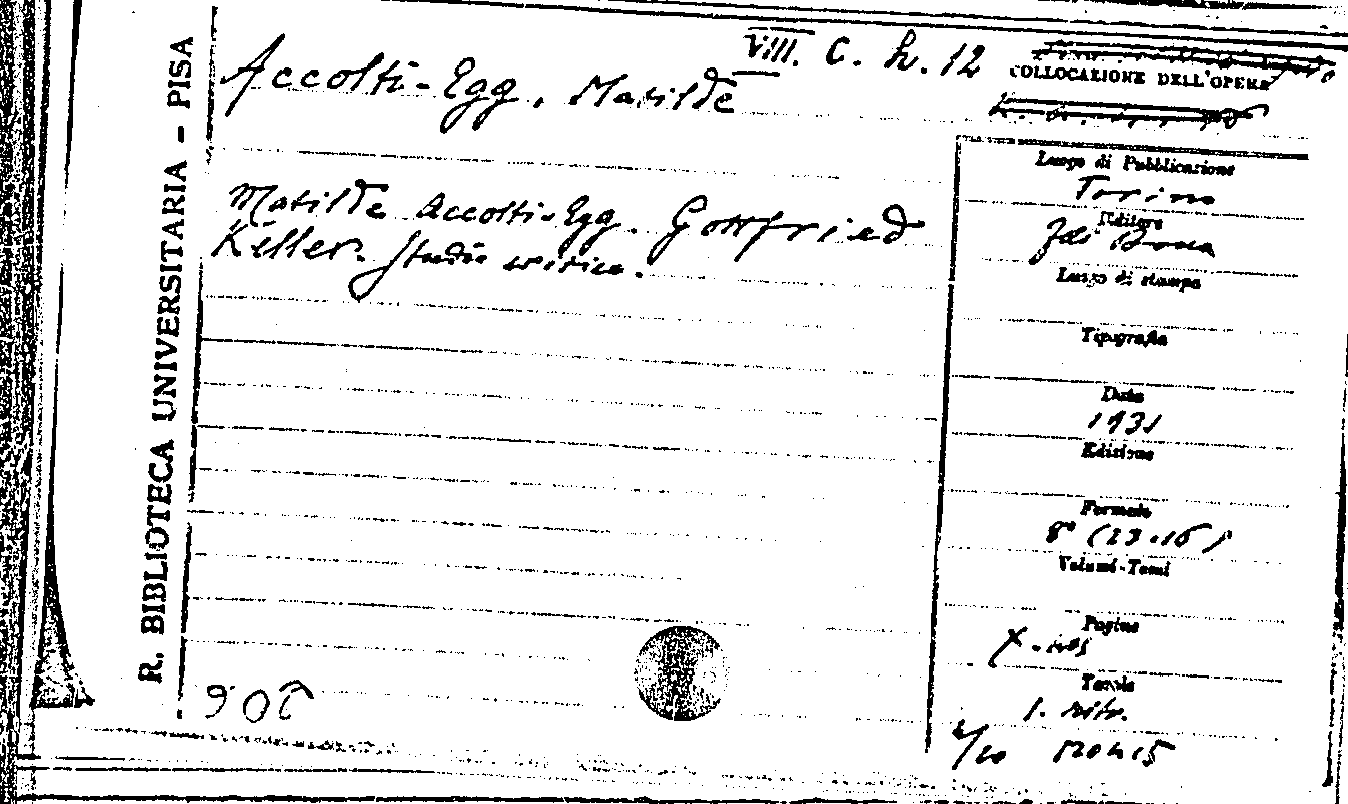 R. BIBLIOTECA UNIVERSITARIA - PISA
VIII. C. h. 12
COLLOCAZIONE DELL'OPERA
Accolti-Egg, Matilde
Matilde Accolti-Egg. Gottfried
Keller. Studio critico.
Luogo di Pubblicazione
Torino
Editore
Bocca
Luogo di stampa
Tipografia
Data
1931
Edizione
Formato
8° (23.16)
Volumi-Tomi
Pagine
X-
Tavole
1. ritr.